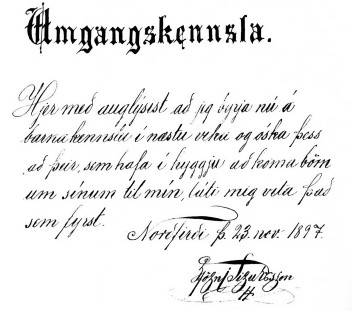 Umgangskennsla.
Hjer með auglýsist að jeg byrja nú á
barnakennslu í næstu viku og óska þess
að þeir, sem hafa í hyggju að koma börn
um sínum til mín, láti mig vita það
sem fyrst.
Norðfirði þ. 23. nóv. 1897.